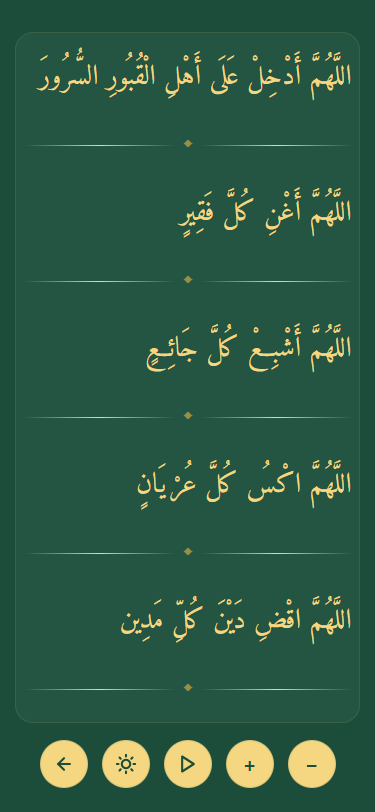 اللَّهُمَّ أَدْخِلْ عَلَى أَهْلِ الْقُبُورِ السُّرُورَ
اللَّهُمَّ أَغْنِ كُلَّ فَقِيرٍ
اللَّهُمَّ أَشْبِعْ كُلَّ جَائِعٍ
اللَّهُمَّ اكْسُ كُلَّ عُرْيَانٍ
اللَّهُمَّ اقْضِ دَيْنَ كُلِّ مَدِين
+ −